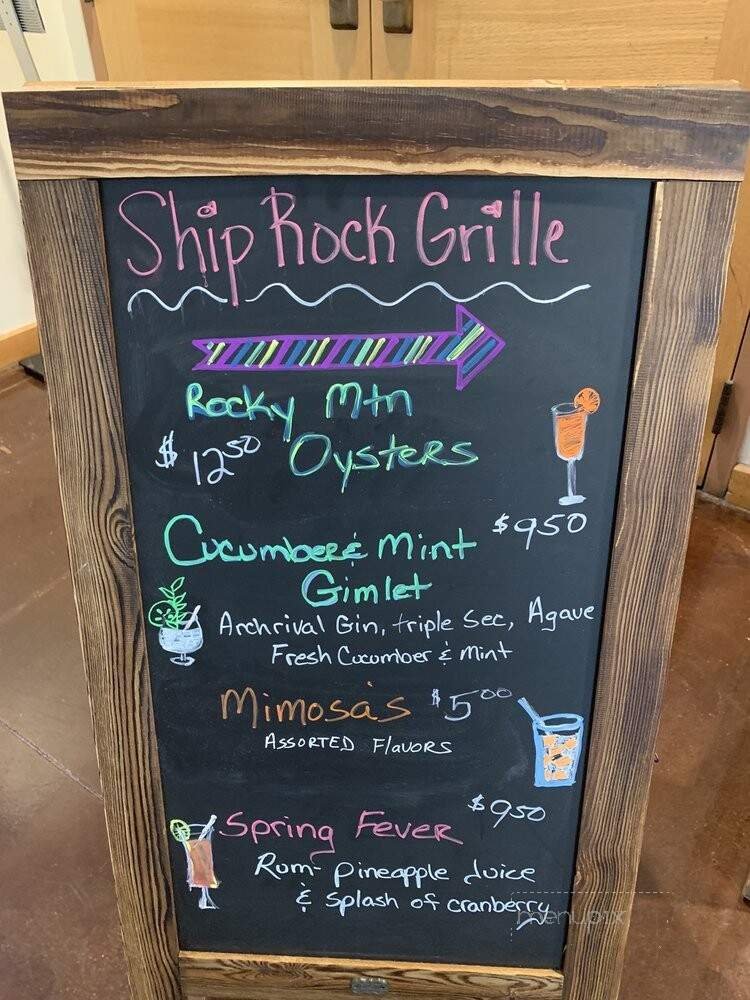 Ship Rock Grille
Rocky Mtn
$12.50 Oysters
Cucumber & Mint $9.50
Gimlet
Archrival Gin, triple Sec, Agave
Fresh Cucumber & Mint
Mimosa's $5.00
Assorted Flavors
$9.50
Spring Fever
Rum- pineapple Juice
& Splash of cranberry
menupix